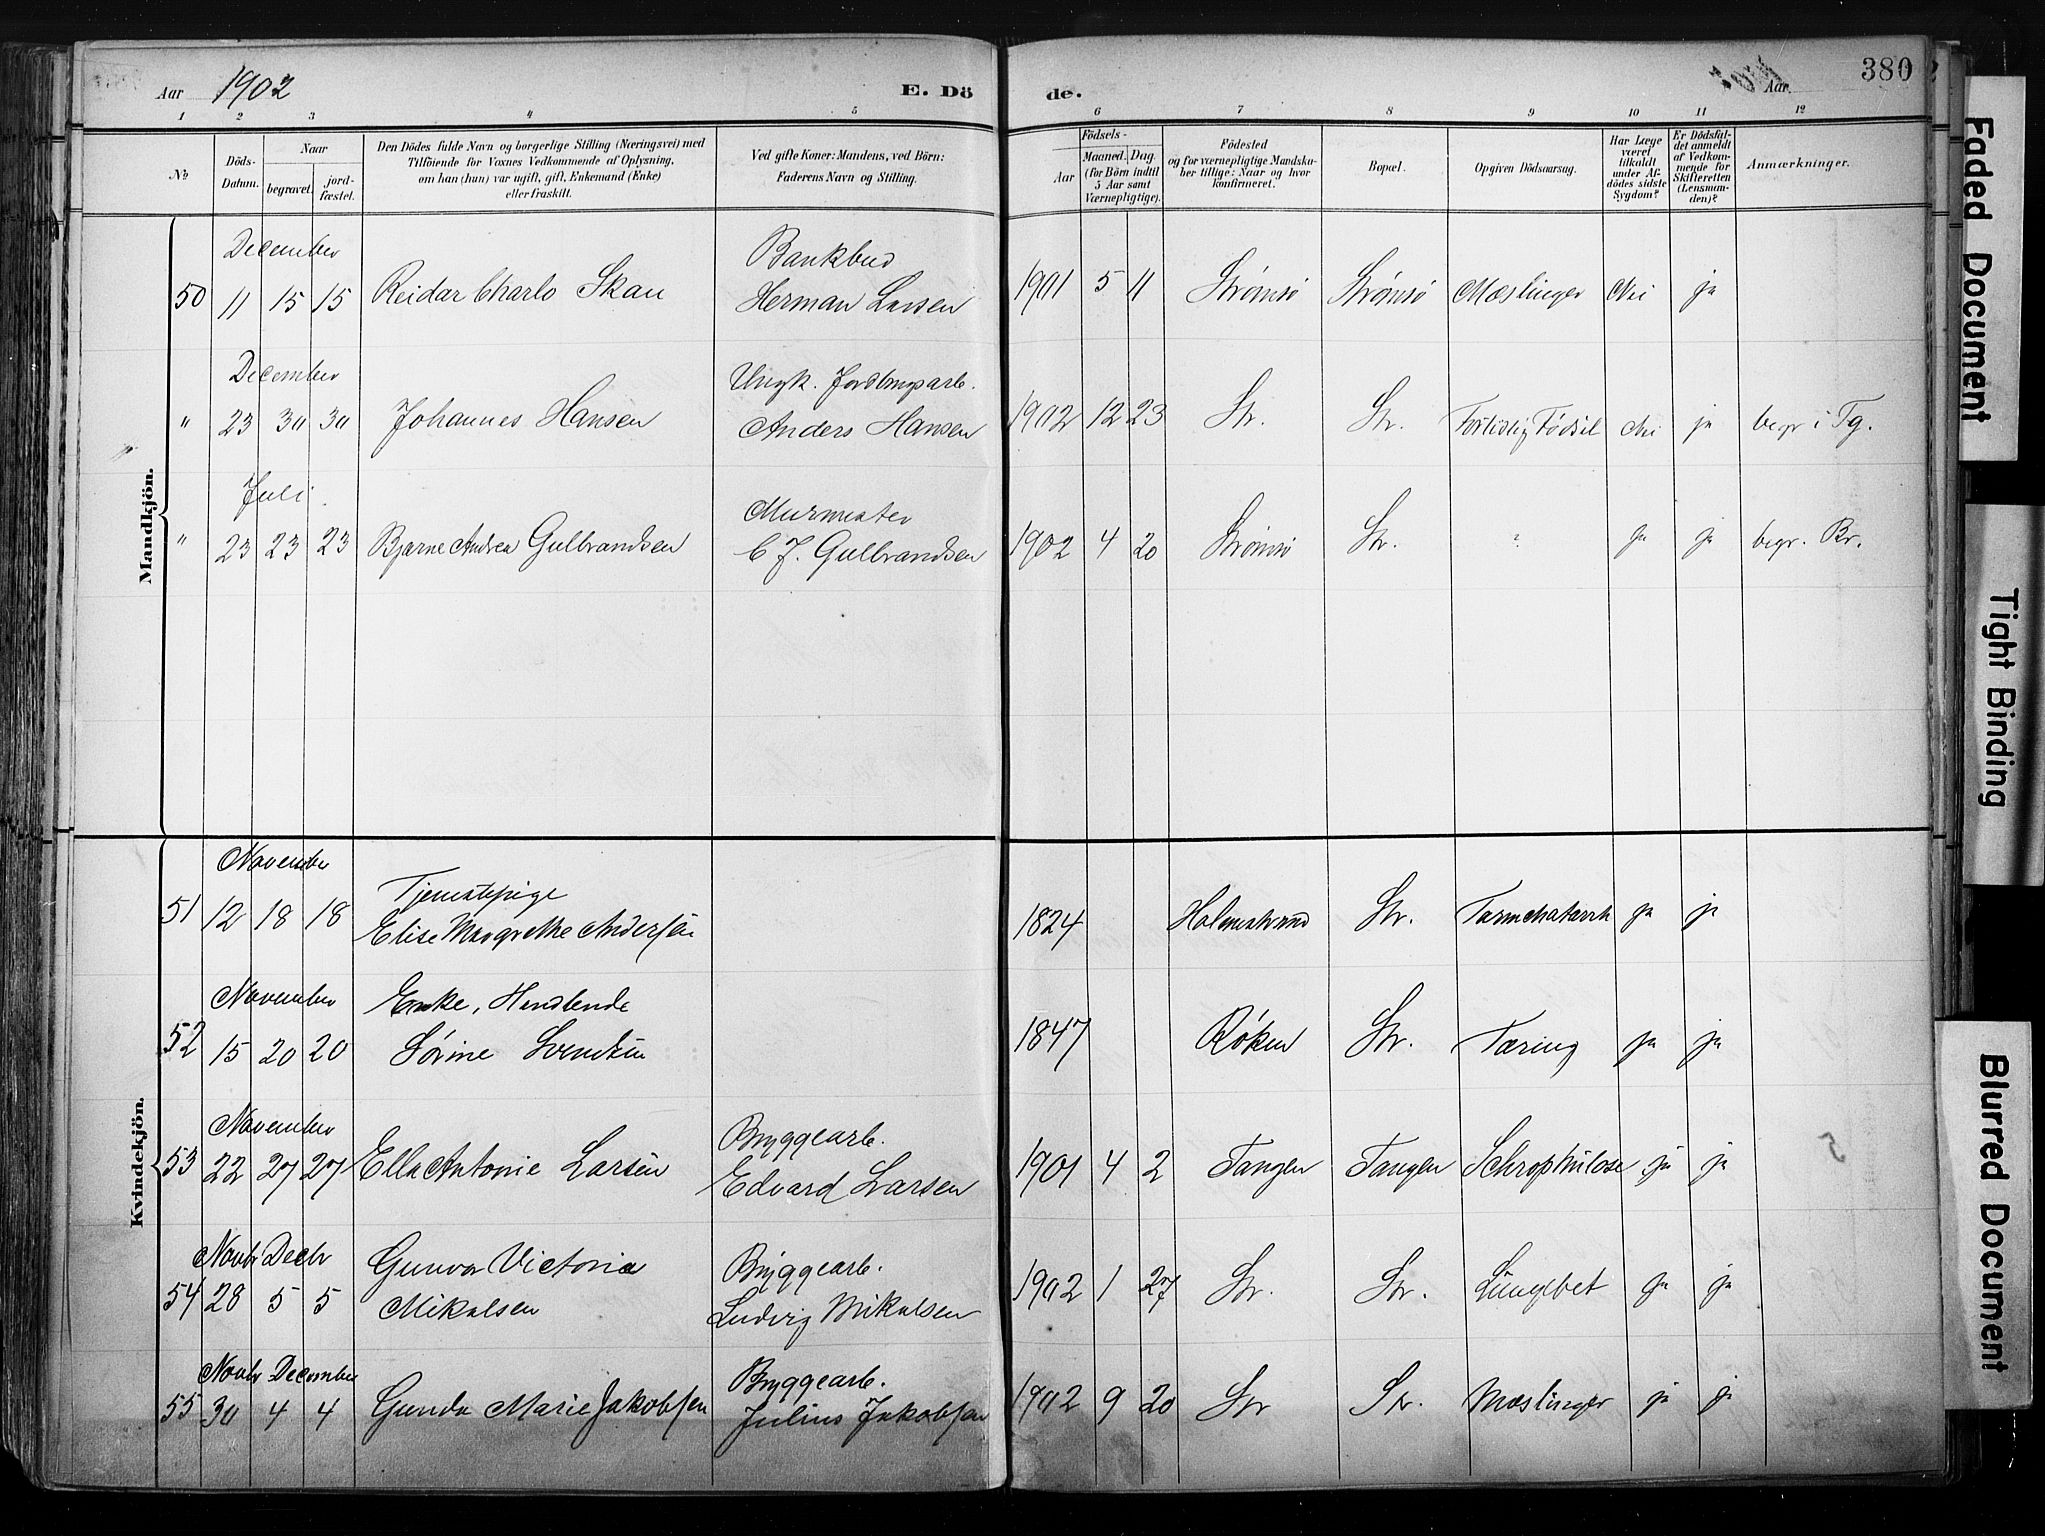 Aar 1902 E. Döde. Aar 380
1 2 3 4 5 6 7 8 9 10 11 12
№
Döds-Datum.
Naar
begravet.
jordfæstet.
Den Dödes fulde Navn og borgerlige Stilling (Næringsvei) med
Tilföiende for Voxnes Vedkommende af Oplysning,
om han (hun) var ugift, gift, Enkemand (Enke)
eller fraskilt.
Ved gifte Koner: Mandens, ved Börn:
Faderens Navn og Stilling.
Födsels-
Aar
Maaned. Dag
(for Börn indtil
5 Aar samt
Værnepligtige).
Födested
og for værnepligtige Mandskaber tillige: Naar og hvor
konfirmeret.
Bopæl.
Opgiven Dödsaarsag.
Har Læge
været
tilkaldt
under Afdödes sidste
Sygdom?
Er Dödsfaldet anmeldt
af Vedkommende for
Skifteretten
(Lensmanden)?
Anmærkninger.
Mandkjön.
December Bankbud
50 11 15 15 Reidar Charlo Skau Herman Larsen 1901 5 11 Strømsø Strømsø Mæslinger Nei ja
December Ungk. Jordbrugsarb.
" 23 30 30 Johannes Hansen Anders Hansen 1902 12 23 Str. Str. Fortidlig Fødsel Nei ja begr i Tg.
Juli Murmester
" 23 23 23 Bjarne Andrea Gulbrandsen C J. Gulbrandsen 1902 4 20 Strømsø Str. ? ja ja begr. Br.
Kvindekjön.
November Tjenestepige
51 12 18 18 Elise Margrethe Andersen 1824 Holmestrand Str. Tarmchatarrh ja ja
November Enke, Handlende
52 15 20 20 Sørine Svendsen 1847 Røken Str. Tæring ja ja
November Byggearb.
53 22 27 27 Ella Antonie Larsen Edvard Larsen 1901 4 2 Tangen Tangen Schrophulose ja ja 5
Novbr Decbr Gunvor Victoria Byggearb.
54 28 5 5 Mikalsen Ludvig Mikalsen 1902 1 27 Str. Str. Lungebet ja ja
Novbr December Byggearb.
55 30 4 4 Gunda Marie Jakobsen Julius Jakobsen 1902 9 20 Str Str. Mæslinger ja ja
Faded Document
Tight Binding
Blurred Document